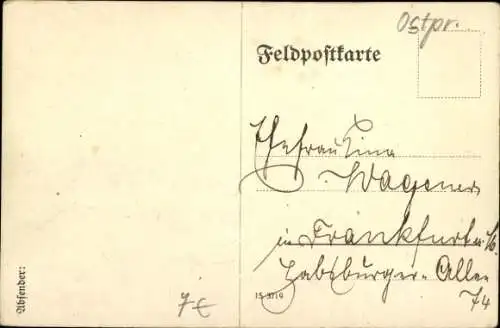 Ostpr.
Feldpostkarte
Ehefrau Lina
Wagener
in Frankfurt a/M.
Habsburger-Allee
74
Absender:
7€
15 3719